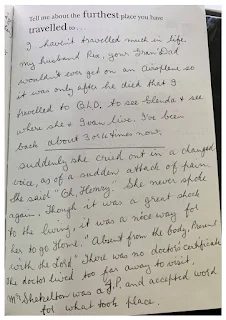 Tell me about the furthest place you have
travelled to...
I haven't travelled much in life
my husband Rex, your Gran'Dad
wouldn't ever get on an airoplane so
it was only after he died that I
travelled to QLD. to see Glenda & see
where she & Ivan live. I've been
back about 3 or 4 times now.
suddenly she cried out in a changed
voice, as of a sudden attack of pain
She said "Oh, Henry." She never spoke
again. Though it was a great shock
to the living, it was a nice way for
her to go Home." Absent from the body, Present
with the Lord" There was no doctor's certificate
The doctor lived too far away to visit.
Mr Shekelton was a J.P. and accepted word
for what took place.